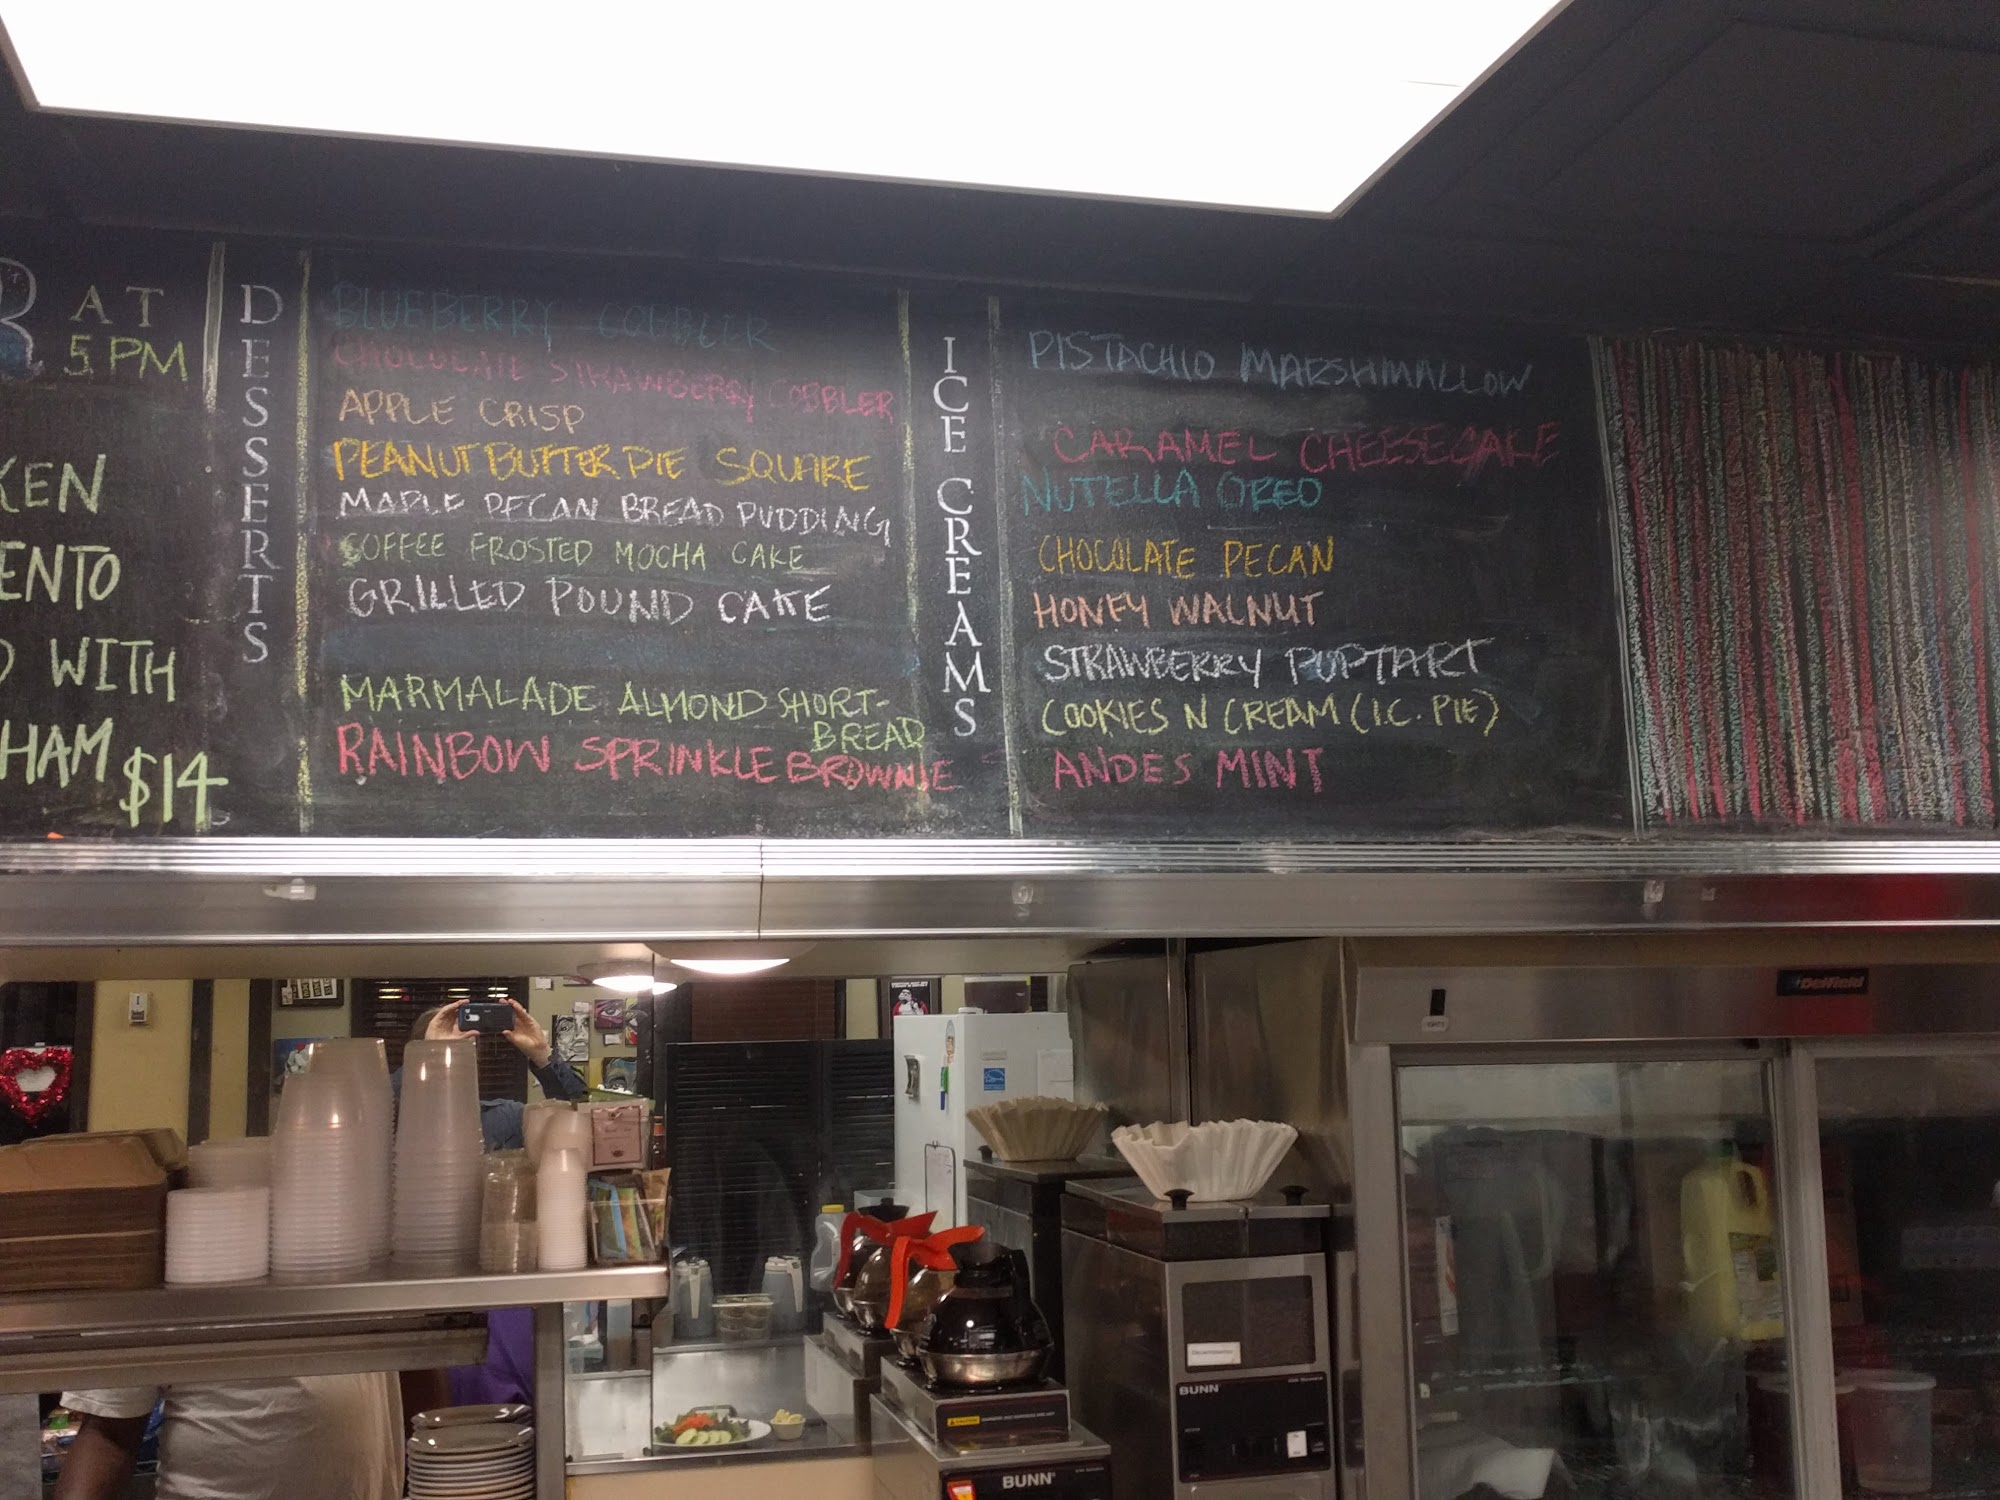 AT
5 PM
KEN
ENTO
WITH
HAM $14
DESSERTS
BLUEBERRY COBBLER
CHOCOLATE STRAWBERRY COBBLER
APPLE CRISP
PEANUT BUTTER PIE SQUARE
MAPLE PECAN BREAD PUDDING
COFFEE FROSTED MOCHA CAKE
GRILLED POUND CAKE
MARMALADE ALMOND SHORT-
BREAD
RAINBOW SPRINKLE BROWNIE
ICE CREAMS
PISTACHIO MARSHMALLOW
CARAMEL CHEESECAKE
NUTELLA OREO
CHOCOLATE PECAN
HONEY WALNUT
STRAWBERRY POPTART
COOKIES N CREAM (I.C. PIE)
ANDES MINT
Delfield
BUNN
BUNN